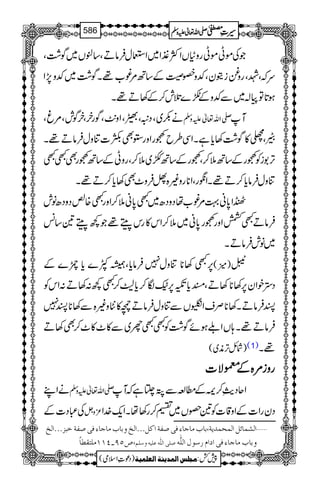 سیرتِ مصطفیٰ صلی اللہ تعالیٰ علیہ وسلم 586
جو کی موٹی موٹی روٹیاں اکثر غذا میں استعمال فرماتے، سالنوں میں گوشت،
سرکہ، شہد، روغن زیتون، کدو خصوصیت کے ساتھ مرغوب تھے۔ گوشت میں کدو پڑا
ہوتا تو پیالہ میں سے کدو کے ٹکڑے تلاش کرکے کھاتے تھے۔
آپ صلی اللہ تعالیٰ علیہ وسلم نے بکری، دنبہ، بھیڑ، اونٹ، گورخر، خرگوش، مرغ،
بٹیر، مچھلی کا گوشت کھایا ہے۔ اسی طرح کھجور اور ستو بھی بکثرت تناول فرماتے تھے۔
تربوز کو کھجور کے ساتھ ملا کر، کھجور کے ساتھ ککڑی ملا کر، روٹی کے ساتھ کھجور بھی کبھی کبھی
تناول فرمایا کرتے تھے۔ انگور، انار وغیرہ پھل فروٹ بھی کھایا کرتے تھے۔
ٹھنڈا پانی بہت مرغوب تھا دودھ میں کبھی پانی ملا کر اور کبھی خالص دودھ نوش
فرماتے کبھی کشمش اور کھجور پانی میں ملا کر اس کا رس پیتے تھے جو کچھ پیتے تین سانس
میں نوش فرماتے۔
ٹیبل (میز) پر کبھی کھانا تناول نہیں فرمایا، ہمیشہ کپڑے یا چمڑے کے
دسترخوان پر کھانا کھاتے، مسند یا تکیہ پر ٹیک لگا کر یا لیٹ کر کبھی کچھ نہ کھاتے نہ اس کو
پسند فرماتے۔ کھانا صرف انگلیوں سے تناول فرماتے چمچہ کانٹا وغیرہ سے کھانا پسند نہیں
فرماتے تھے۔ ہاں ابلے ہوئے گوشت کو کبھی کبھی چھری سے کاٹ کاٹ کر بھی کھاتے
تھے۔(1) (شمائل ترمذی)
روزمرہ کے معمولات
احادیثِ کریمہ کے مطالعہ سے پتہ چلتا ہے کہ آپ صلی اللہ تعالیٰ علیہ وسلم نے اپنے
دن رات کے اوقات کو تین حصوں میں تقسیم کر رکھا تھا۔ ایک خدا عزوجل کی عبادت کے
1……الشمائل المحمدیۃ، باب ماجاء فی صفۃ اکل…الخ وباب ماجاء فی صفۃ خبز…الخ
وباب ماجاء فی ادام رسول اللہ صلی اللہ علیہ وسلم، ص۹۵۔۱۱۴ ملتقطاً
پیش کش: مجلس المدینۃ العلمیۃ (دعوتِ اسلامی)